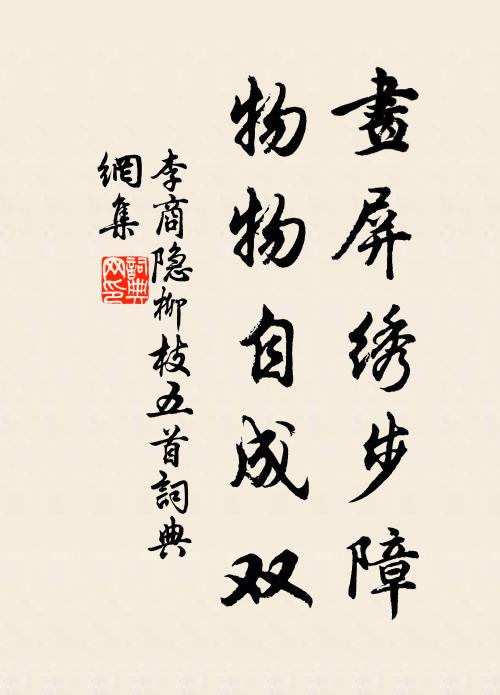 畫屏绣步障
物物自成双
李商隐柳枝五首詞典
網集
詞典網印